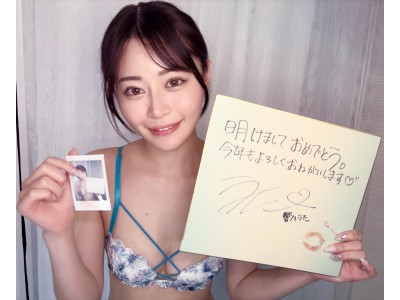 明けまして おめでとう。
今年もよろしくおねがいします♡